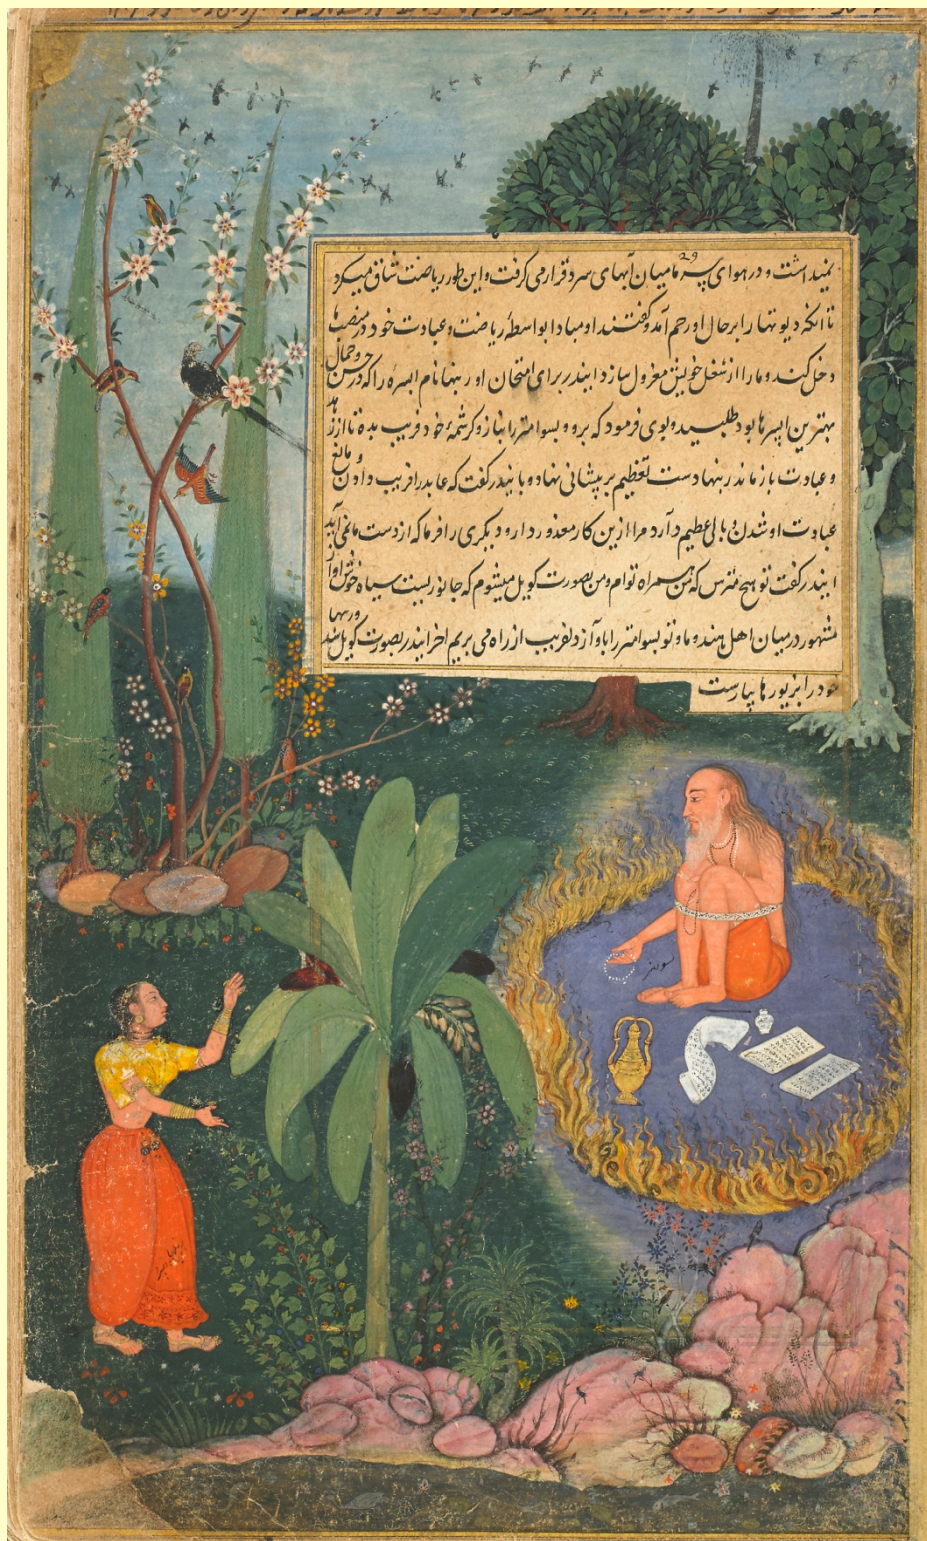 نمیداشت و در هوای سرما میان آبهای سرد قرار می گرفت و این طور ریاضت شاق میکرد
تا آنکه دیوتها را بر حال او رحم آمد و گفتند او مبادا بواسطهٔ ریاضت و عبادت خود در منصب ما
دخل کند و ما را از شغل خویش معزول سازد ایندر برای امتحان او رنبها نام اپسره را که در حسن و جمال
بهترین اپسرها بود طلبید و بوی فرمود که برو و بسوامتر را بناز و کرشمهٔ خود فریب بده تا از زهد
و عبادت باز ماند رنبها دست تعظیم بر پیشانی نهاد و با ایندر گفت که عابد را فریب دادن و مانع
عبادت او شدن وبالی عظیم دارد مرا ازین کار معذور دار و دیگری را فرما که از دست ما نمی آید
ایندر گفت تو هیچ مترس که من همراه توام و من بصورت کویل میشوم که جانوریست سیاه خوش آواز
مشهور در میان اهل هند و ما و تو بسوامتر را باواز دلفریب از راه می بریم اخر ایندر بصورت کویل شد و رنبها
خود را بزیورها بیاراست